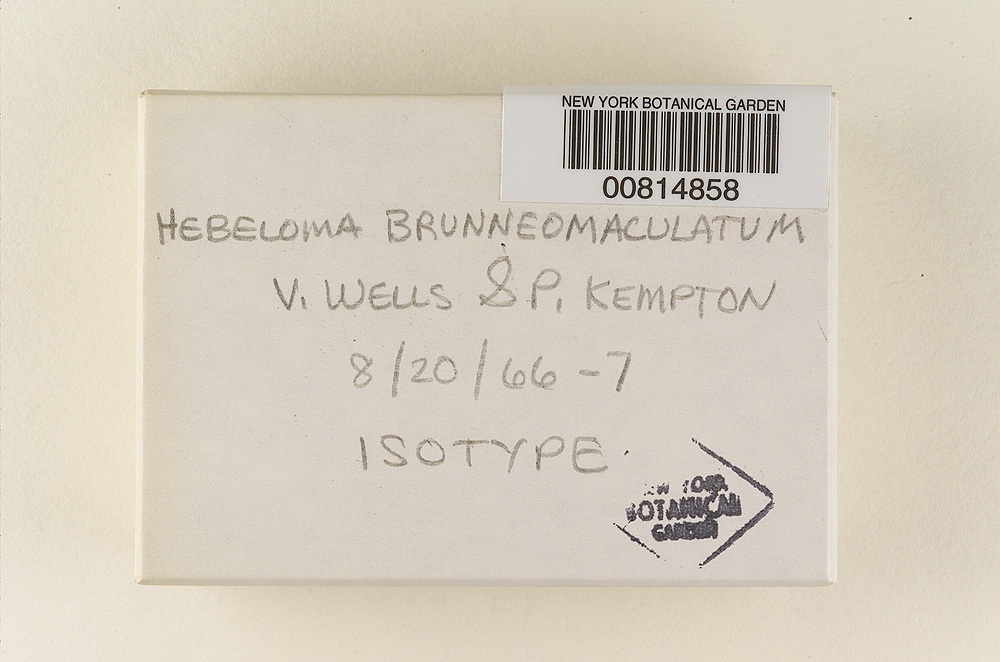 NEW YORK BOTANICAL GARDEN
00814858
HEBELOMA BRUNNEOMACULATUM
V. WELLS & P. KEMPTON
8/20/66-7
ISOTYPE
NEW YORK
BOTANICAL
GARDEN